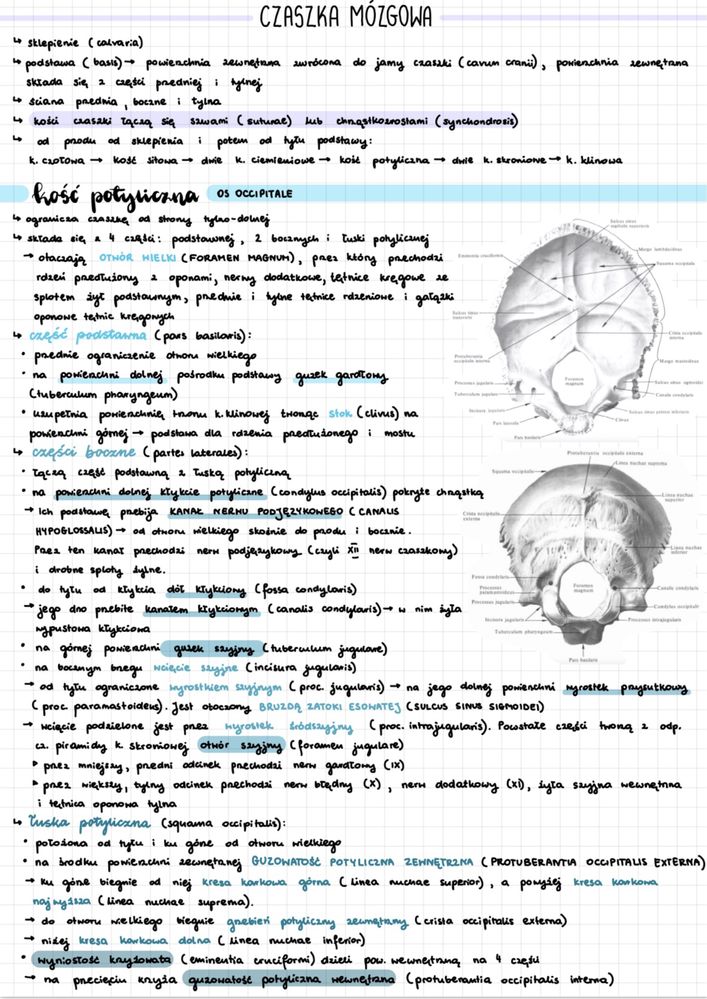 CZASZKA MÓZGOWA
↳ sklepienie (calvaria)
↳ podstawa (basis) → powierzchnia zewnętrzna zwrócona do jamy czaszki (cavum cranii), powierzchnia zewnętrzna
składa się z części przedniej i tylnej
↳ ściana przednia, boczne i tylna
↳ kości czaszki łączą się szwami (suturae) lub chrząstkozrostami (synchondrosis)
↳ od przodu od sklepienia i potem od tyłu podstawy:
k. czołowa → kość sitowa → dwie k. ciemieniowe → kość potyliczna → dwie k. skroniowe → k. klinowa
kość potyliczna OS OCCIPITALE
↳ ogranicza czaszkę od strony tylno-dolnej
↳ składa się z 4 części: podstawnej, 2 bocznych i łuski potylicznej
→ otaczają OTWÓR WIELKI (FORAMEN MAGNUM), przez który przechodzi
rdzeń przedłużony z oponami, nerwy dodatkowe, tętnice kręgowe ze
splotem żył podstawnym, przednie i tylne tętnice rdzeniowe i gałązki
oponowe tętnic kręgowych
↳ część podstawna (pars basilaris):
• przednie ograniczenie otworu wielkiego
• na powierzchni dolnej pośrodku podstawy guzek gardłowy
(tuberculum pharyngeum)
• uzupełnia powierzchnię tronu k. klinowej tworząc stok (clivus) na
powierzchni górnej → podstawa dla rdzenia przedłużonego i mostu
↳ części boczne (partes laterales):
• łączą część podstawną z łuską potyliczną
• na powierzchni dolnej kłykcie potyliczne (condylus occipitalis) pokryte chrząstką
→ ich podstawę przebija KANAŁ NERWU PODJĘZYKOWEGO (CANALIS
HYPOGLOSSALIS) → od otworu wielkiego skośnie do przodu i bocznie.
Przez ten kanał przechodzi nerw podjęzykowy (czyli XII nerw czaszkowy)
i drobne sploty żylne.
• do tyłu od kłykcia dół kłykciowy (fossa condylaris)
→ jego dno przebite kanałem kłykciowym (canalis condylaris) → w nim żyła
wypustowa kłykciowa
• na górnej powierzchni guzek szyjny (tuberculum jugulare)
• na bocznym brzegu wcięcie szyjne (incisura jugularis)
→ od tyłu ograniczone wyrostkiem szyjnym (proc. jugularis) → na jego dolnej powierzchni wyrostek przysutkowy
(proc. paramastoideus). Jest otoczony BRUZDĄ ZATOKI ESOWATEJ (SULCUS SINUS SIGMOIDEI)
→ wcięcie podzielone jest przez wyrostek śródszyjny (proc. intrajugularis). Powstałe części tworzą z odp.
cz. piramidy k. skroniowej otwór szyjny (foramen jugulare)
▸ przez mniejszy, przedni odcinek przechodzi nerw gardłowy (IX)
▸ przez większy, tylny odcinek przechodzi nerw błędny (X), nerw dodatkowy (XI), żyła szyjna wewnętrzna
i tętnica oponowa tylna
↳ łuska potyliczna (squama occipitalis):
• położona od tyłu i ku górze od otworu wielkiego
• na środku powierzchni zewnętrznej GUZOWATOŚĆ POTYLICZNA ZEWNĘTRZNA (PROTUBERANTIA OCCIPITALIS EXTERNA)
→ ku górze biegnie od niej kresa karkowa górna (linea nuchae superior), a powyżej kresa karkowa
najwyższa (linea nuchae suprema).
→ do otworu wielkiego biegnie grzebień potyliczny zewnętrzny (crista occipitalis externa)
→ niżej kresa karkowa dolna (linea nuchae inferior)
• wyniosłość krzyżowata (eminentia cruciformi) dzieli pow. wewnętrzną na 4 części
→ na przecięciu krzyża guzowatość potyliczna wewnętrzna (protuberantia occipitalis interna)
Sulcus sinus
sagittalis superioris
Margo lambdoideus
Eminentia cruciformis
Squama occipitalis
Sulcus sinus
transversi
Crista occipitalis
interna
Protuberantia
occipitalis interna
Margo mastoideus
Processus jugularis
Foramen
magnum
Sulcus sinus sigmoidei
Tuberculum jugulare
Canalis condylaris
Incisura jugularis
Sulcus sinus petrosi inferioris
Pars lateralis
Clivus
Pars basilaris
Protuberantia occipitalis externa
Squama occipitalis
Linea nuchae suprema
Linea nuchae
superior
Crista occipitalis
externa
Linea nuchae
inferior
Fossa condylaris
Foramen
magnum
Processus
paramastoideus
Canalis condylaris
Processus jugularis
Condylus occipitalis
Incisura jugularis
Processus intrajugularis
Tuberculum pharyngeum
Pars basilaris